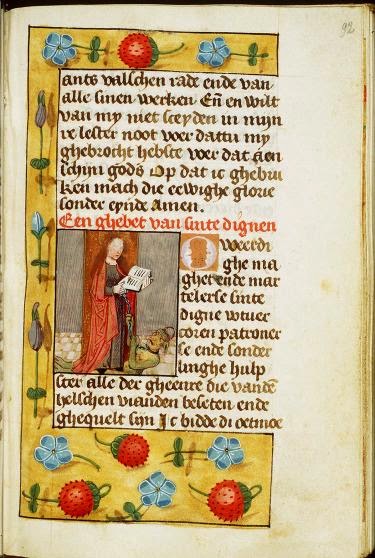 92
ants valschen rade ende van
alle sinen werken Eñ en wilt
van my niet sceyden in mijn
re lester noot voer dattu my
ghebrocht hebste voer dat aen
schijn gods Op dat ic ghebru
ken mach die eewighe glorie
sonder eynde Amen.
Een ghebet van sinte dignen
O weerdi
ghe ma
ghet ende mar
telersse sinte
digne wtuer
coren patroner
se ende sonder
linghe hulp
ster alle der gheenre die vandē
helschen vianden beseten ende
ghequelt sijn Ic bidde di oetmoe